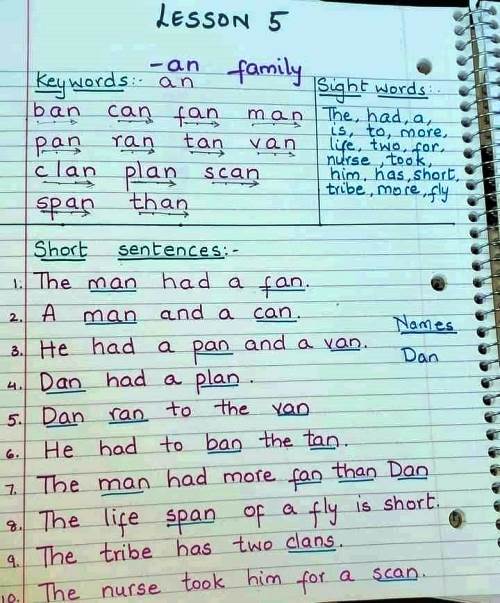 LESSON 5
-an family
Key words:- an
ban can fan man
pan ran tan van
clan plan scan
span than
Sight words:-
The, had, a,
is, to, more,
life, two, for,
nurse, took,
him, has, short,
tribe, more, fly
Short sentences:-
1. The man had a fan.
2. A man and a can.
3. He had a pan and a van.
4. Dan had a plan.
5. Dan ran to the van
6. He had to ban the tan.
7. The man had more fan than Dan
8. The life span of a fly is short.
9. The tribe has two clans.
10. The nurse took him for a scan.
Names
Dan